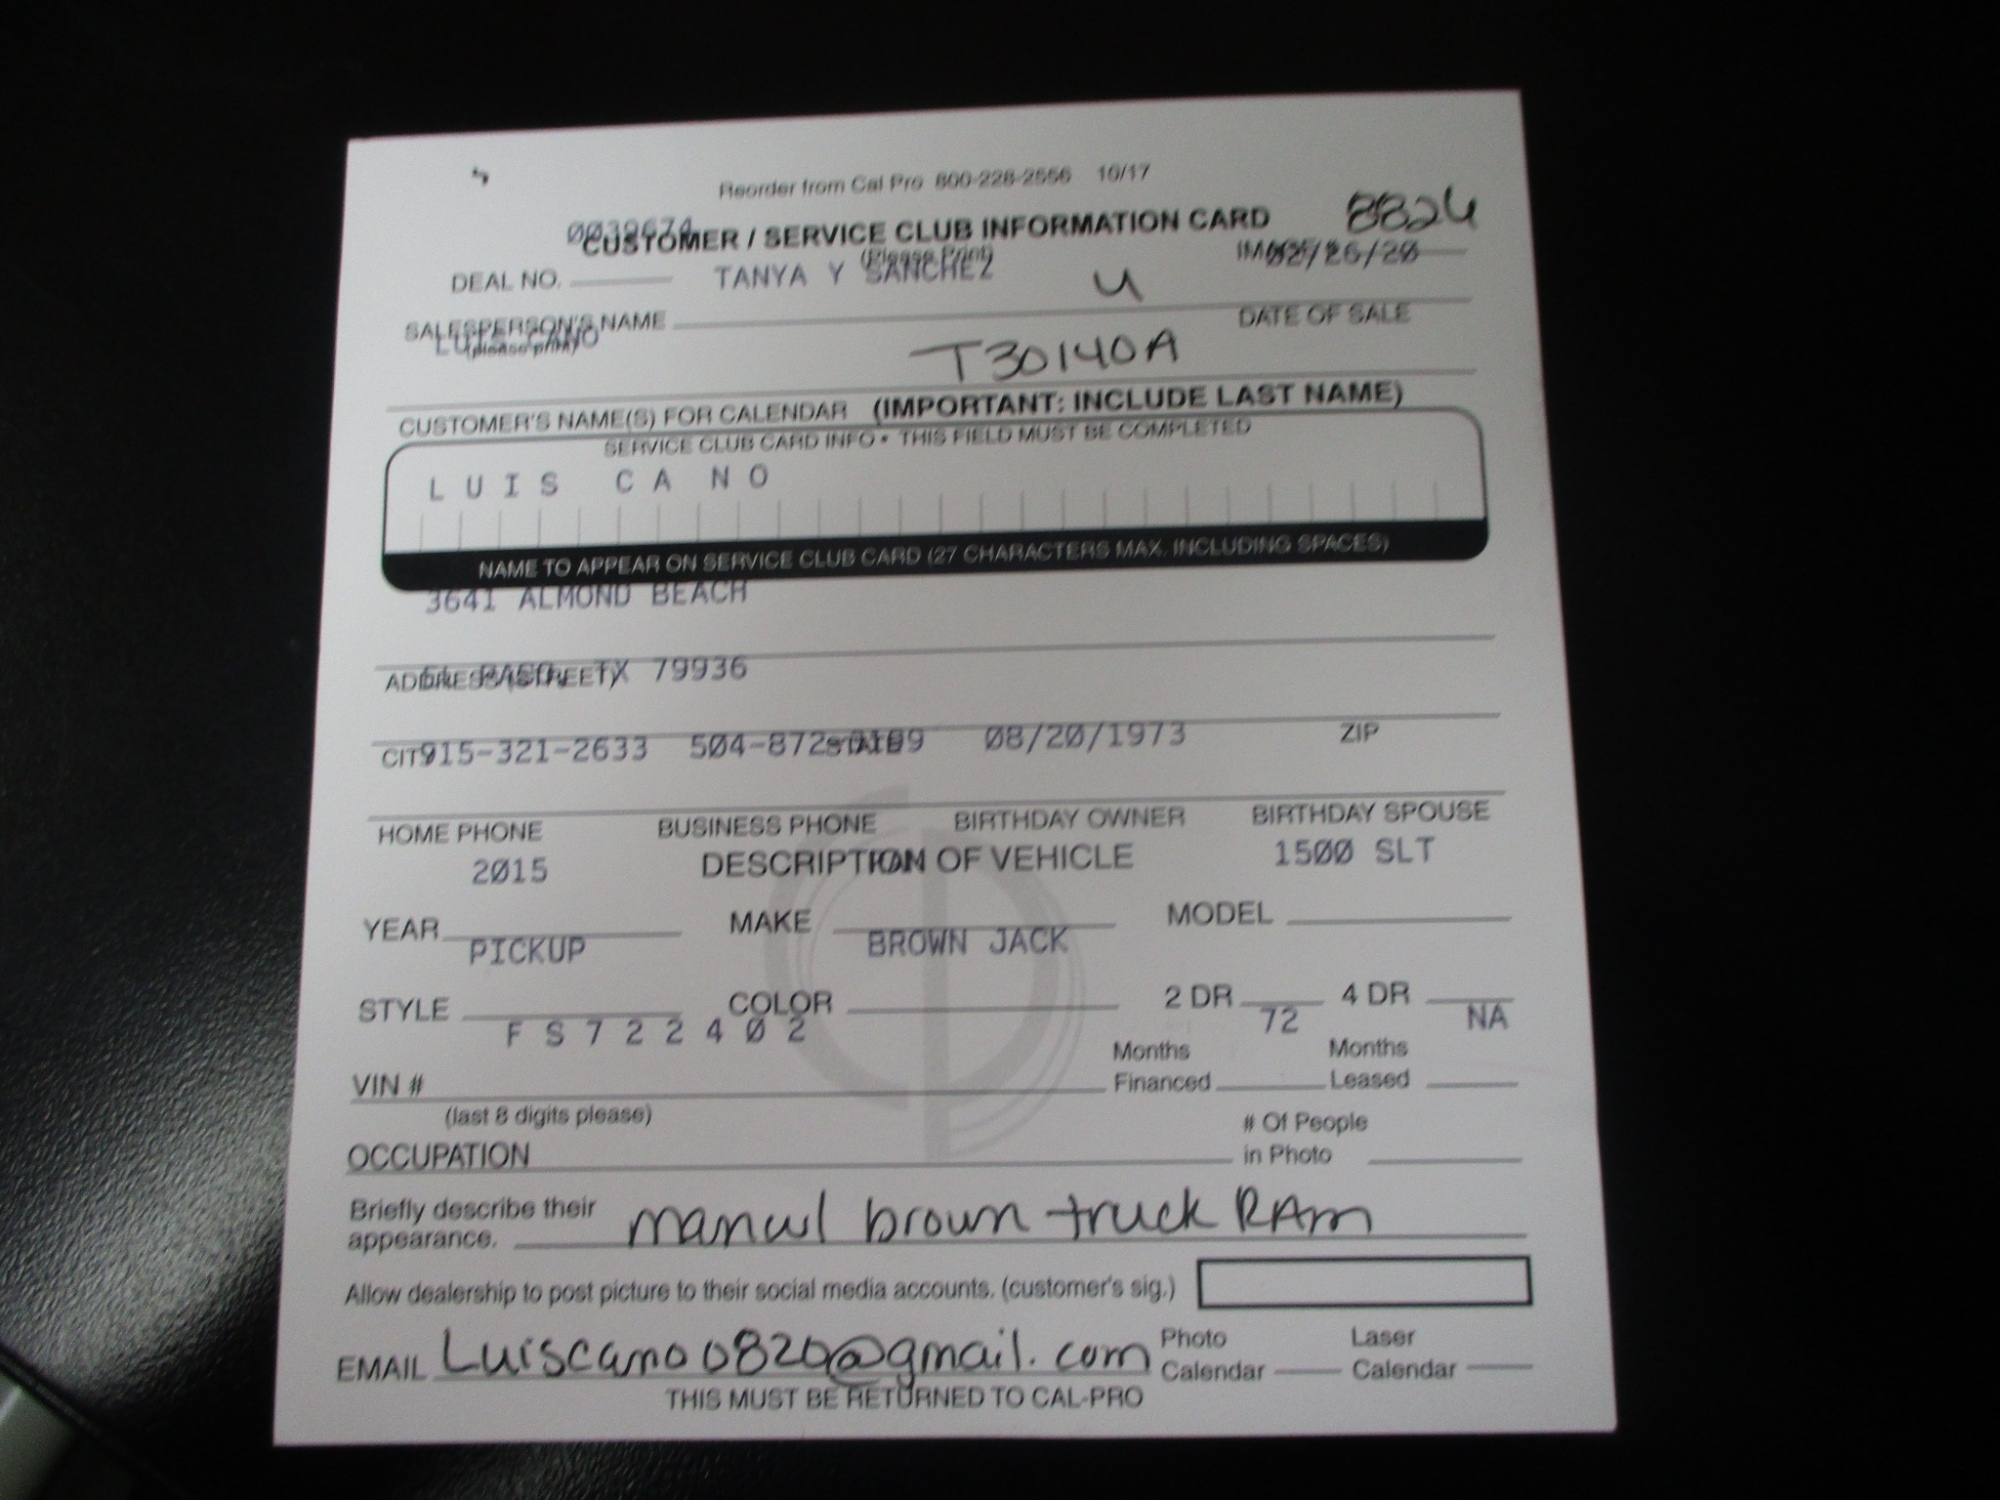 Reorder from Cal Pro 800-228-2556 10/17
8824
CUSTOMER / SERVICE CLUB INFORMATION CARD
(Please Print)
02/26/20
DEAL NO. TANYA Y SANCHEZ U
SALESPERSON'S NAME DATE OF SALE
LUIS CANO
(please print)
T30140A
CUSTOMER'S NAME(S) FOR CALENDAR (IMPORTANT: INCLUDE LAST NAME)
SERVICE CLUB CARD INFO • THIS FIELD MUST BE COMPLETED
LUIS CANO
NAME TO APPEAR ON SERVICE CLUB CARD (27 CHARACTERS MAX. INCLUDING SPACES)
3641 ALMOND BEACH
ADDRESS (STREET)
EL PASO, TX 79936
915-321-2633 08/20/1973
CITY STATE ZIP
HOME PHONE BUSINESS PHONE BIRTHDAY OWNER BIRTHDAY SPOUSE
DESCRIPTION OF VEHICLE
2015 RAM 1500 SLT
YEAR MAKE MODEL
PICKUP BROWN JACK
STYLE COLOR 2 DR 4 DR
FS722402 72 NA
VIN # Months Financed Months Leased
(last 8 digits please)
OCCUPATION # Of People in Photo
Briefly describe their
appearance. manual brown truck RAM
Allow dealership to post picture to their social media accounts. (customer's sig.)
EMAIL Luiscano0820@gmail.com Photo Calendar Laser Calendar
THIS MUST BE RETURNED TO CAL-PRO